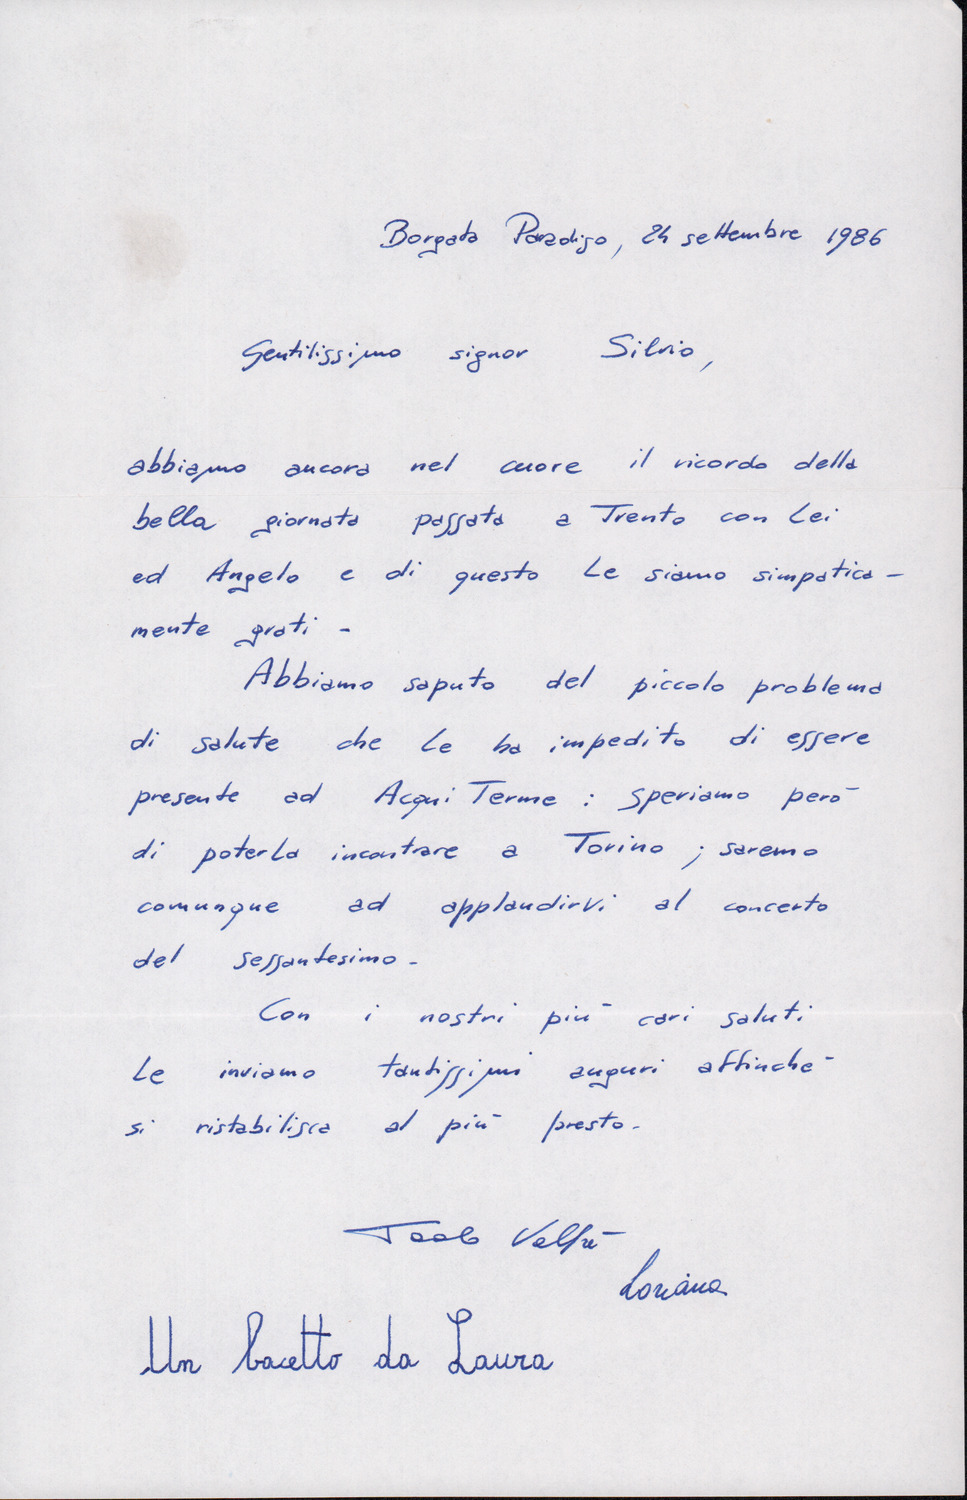 Borgata Paradiso, 24 settembre 1986
Gentilissimo signor Silvio,
abbiamo ancora nel cuore il ricordo della
bella giornata passata a Trento con Lei
ed Angelo e di questo Le siamo simpatica-
mente grati -
Abbiamo saputo del piccolo problema
di salute che Le ha impedito di essere
presente ad Acqui Terme : speriamo però
di poterLa incontrare a Torino ; saremo
comunque ad applaudirVi al concerto
del sessantesimo.
Con i nostri più cari saluti
Le inviamo tantissimi auguri affinchè
si ristabilisca al più presto.
Paolo Valfrè
Loriana
Un bacetto da Laura